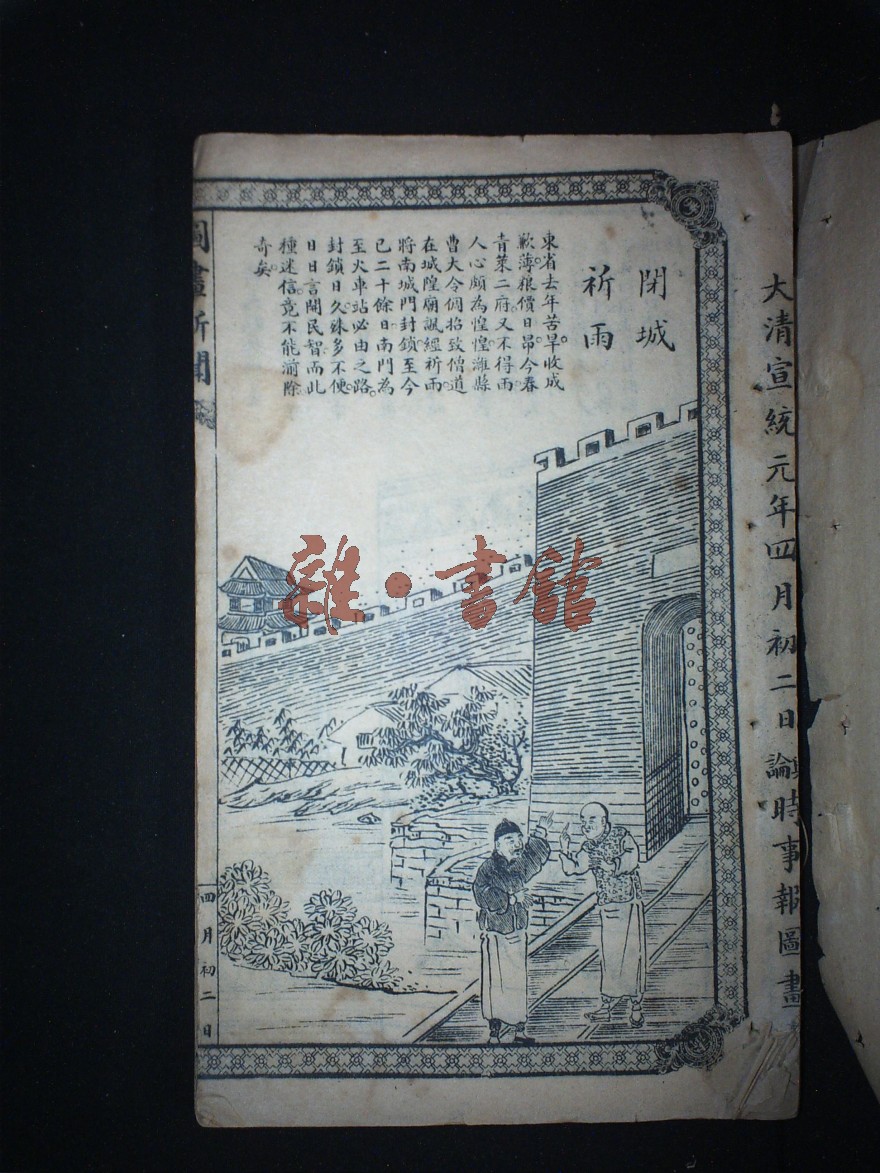 大清宣統元年四月初二日輿論時事報圖畫
閉城
祈雨
東省去年苦旱。收成
歉薄。粮價日昂。今春
青萊二府。又不得雨
人心頗為惶惶。濰縣
曹大令倜招致僧道
在城隍廟諷經祈雨。
將南城門封鎖。至今
已二十餘日。南門為
至火車站必由之路。
封鎖日久。殊多不便。
日日言開民智。而此
種迷信。竟不能湔除。
奇矣。
圖畫新聞
四月初二日
雜·書館